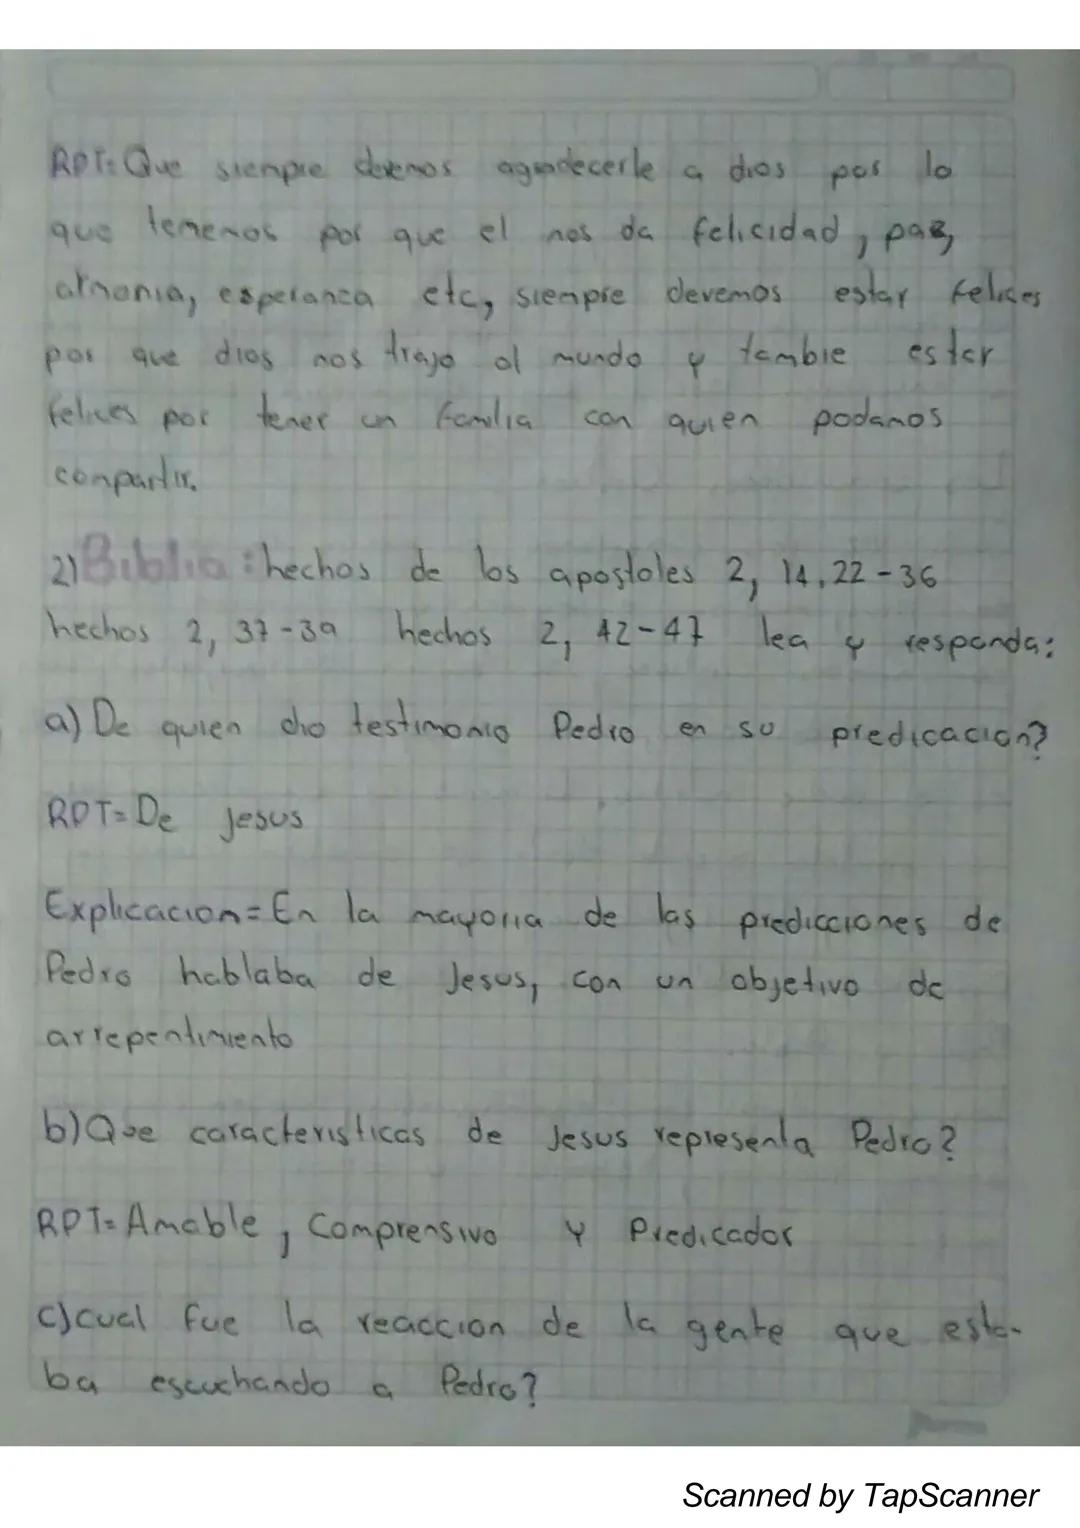 RPT: Que siempre devemos agradecerle a dios por lo
que temenos por que el nos da felicidad, paz,
armonia, esperanza etc, siempre devemos estar felices
por que dios nos trajo al mundo y tambie estar
felices por tener un familia con quien podamos
compartir.
2) Biblia: hechos de los apostoles 2, 14, 22-36
hechos 2, 37-39 hechos 2, 42-47 lea y responda:
a) De quien dio testimonio Pedro en su predicacion?
RPT= De Jesus
Explicacion= En la mayoria de las predicciones de
Pedro hablaba de Jesus, con un objetivo de
arrepentimiento
b) Que caracteristicas de Jesus representa Pedro?
RPT= Amable, Comprensivo y Predicador
c) cual fue la reaccion de la gente que esta-
ba escuchando a Pedro?
Scanned by TapScanner